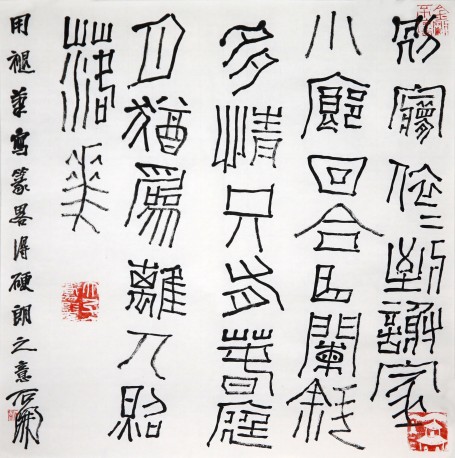 別夢依々到謝家
小廊回合曲闌斜
多情只有春庭
月猶爲離人照
落花
用褪筆寫篆畧得硬朗之意